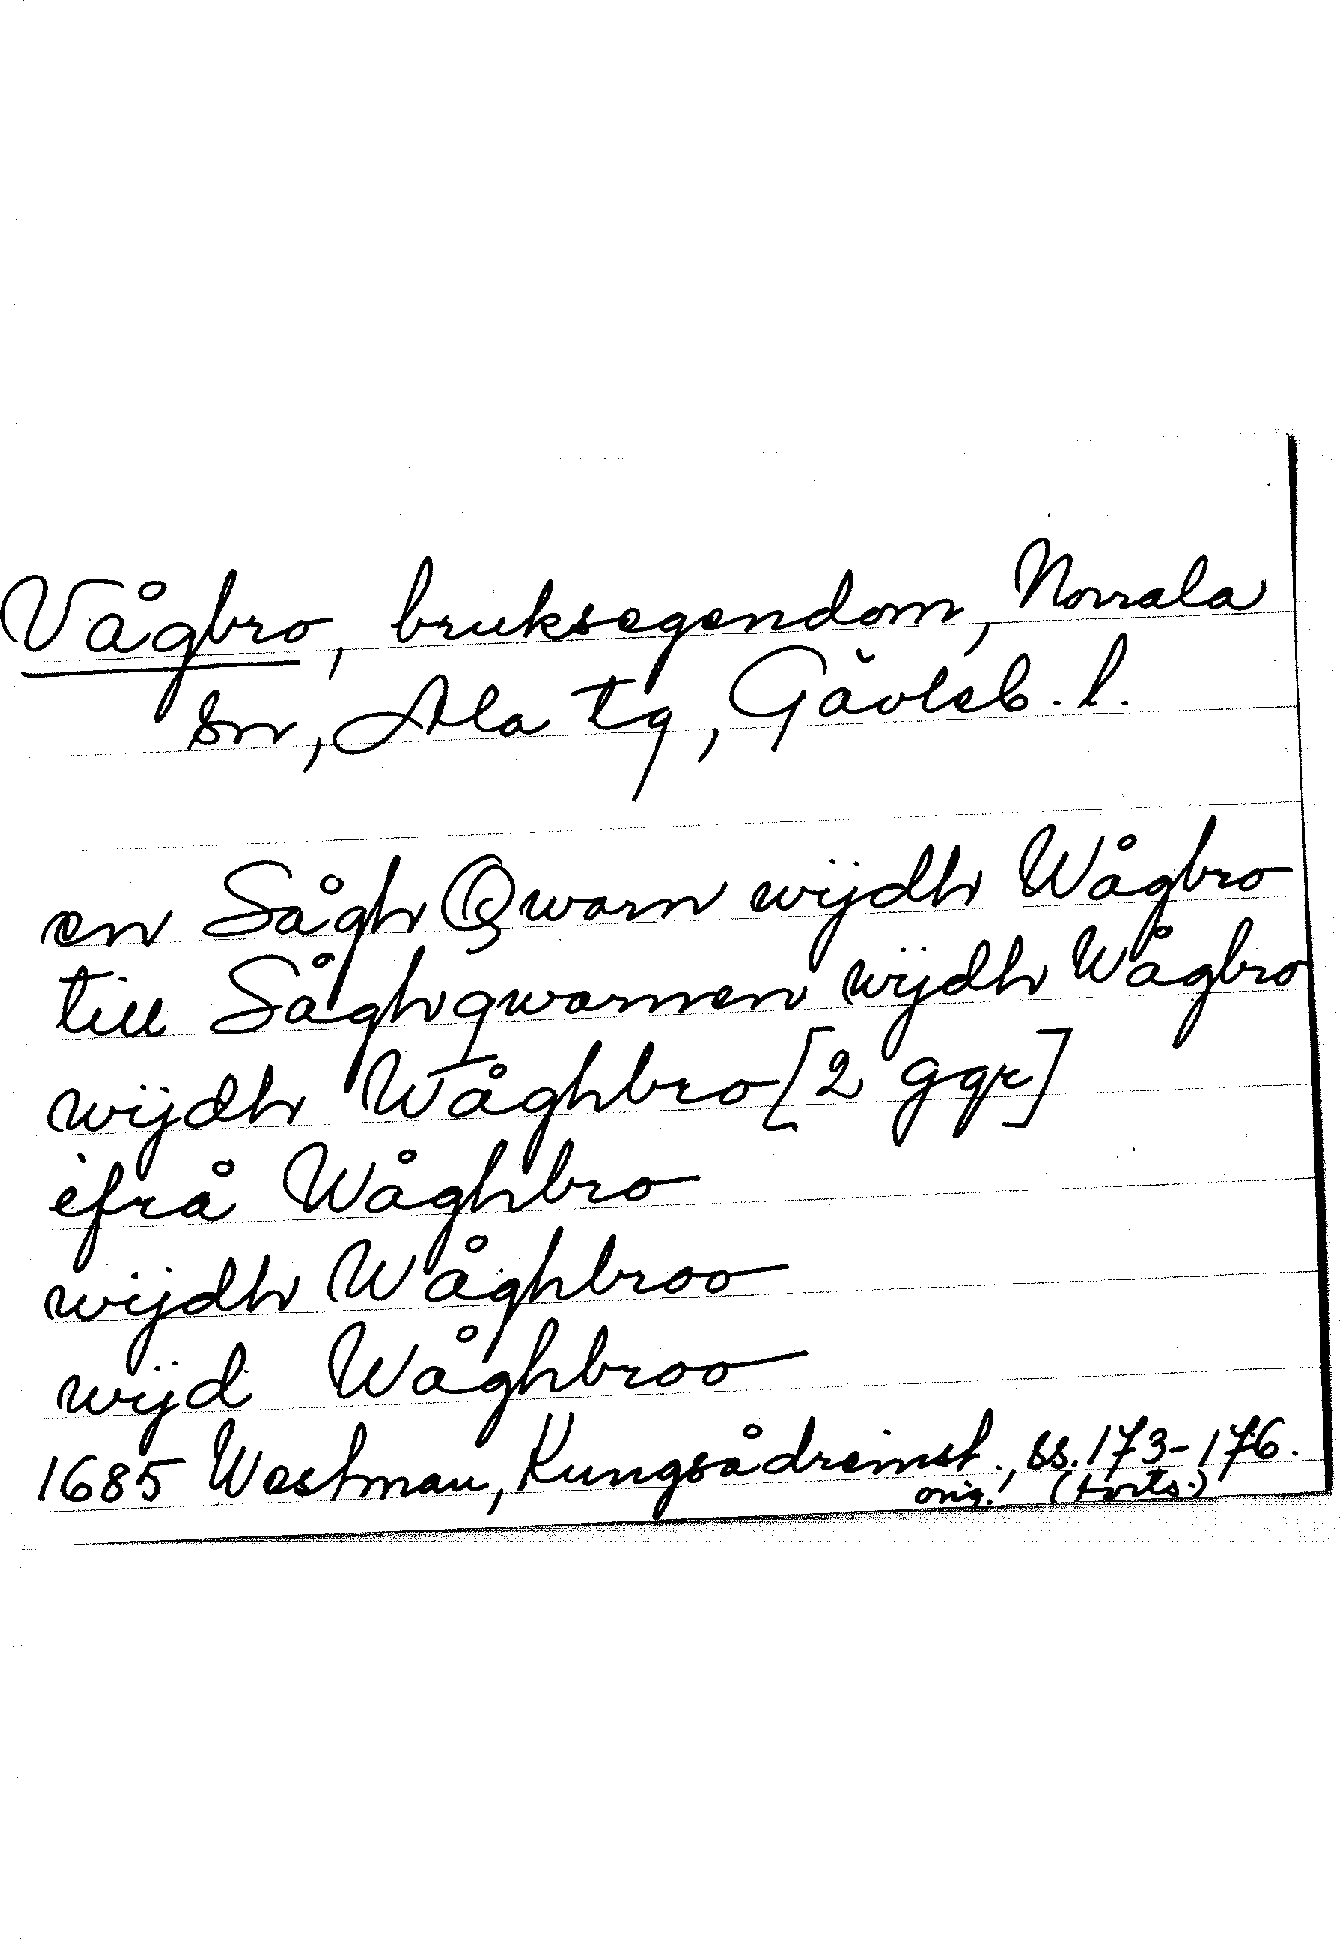 Vågbro, bruksegendom, Norrala
sn, Ala tg, Gävleb. l.
en Sågh Qwarn wijdh Wågbro
till Såghqwarnen wijdh Wågbro
wijdh Wåghbro [2 ggr]
ifrå Wåghbro
wijdh Wåghbroo
wijd Wåghbroo
1685 Westman, Kungsådreinst., ss. 173-176.
orig. (forts.)